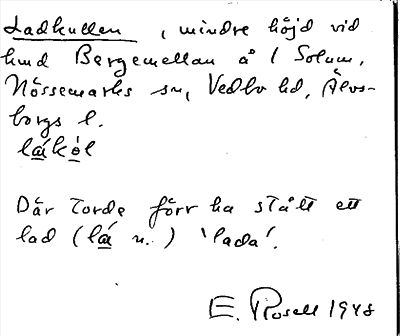 Ladkullen, mindre höjd vid
hmd Bergemellan å l Solum,
Nössemarks sn, Vedbo hd, Älvs-
borgs l.
lákòl
Där torde förr ha stått ett
lad (lá n.) 'lada'.
E. Rosell 1948